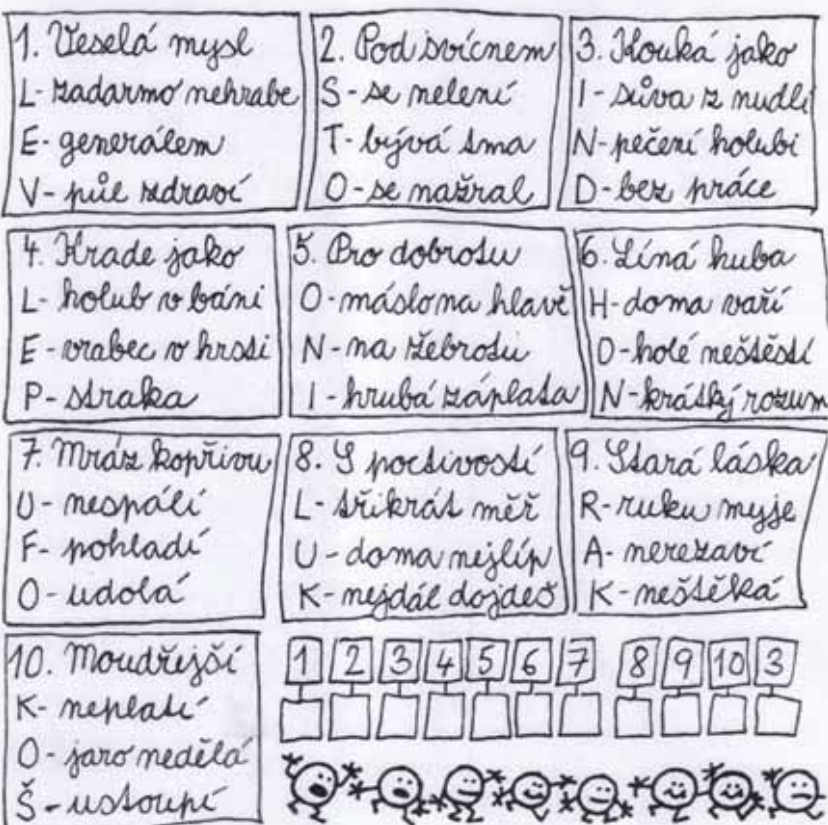 1. Veselá mysl
L- zadarmo nehrabe
E- generálem
V- půl zdraví
2. Pod svícnem
S- se nelení
T- bývá tma
O- se nažral
3. Kouká jako
I- sůva z nudlí
N- pečení holubi
D- bez práce
4. Krade jako
L- holub v báni
E- vrabec v hrsti
P- straka
5. Pro dobrotu
O- máslo na hlavě
N- na žebrotu
I- hrubá záplata
6. Líná huba
H- doma vaří
O- holé neštěstí
N- krátký rozum
7. Mráz kopřivu
U- nespálí
F- pohladí
O- udolá
8. S poctivostí
L- třikrát měř
U- doma nejlíp
K- nejdál dojdeš
9. Stará láska
R- ruku myje
A- nerezaví
K- neštěká
10. Moudřejší
K- neplatí
O- jaro nedělá
Š- ustoupí
1 2 3 4 5 6 7 8 9 10 3